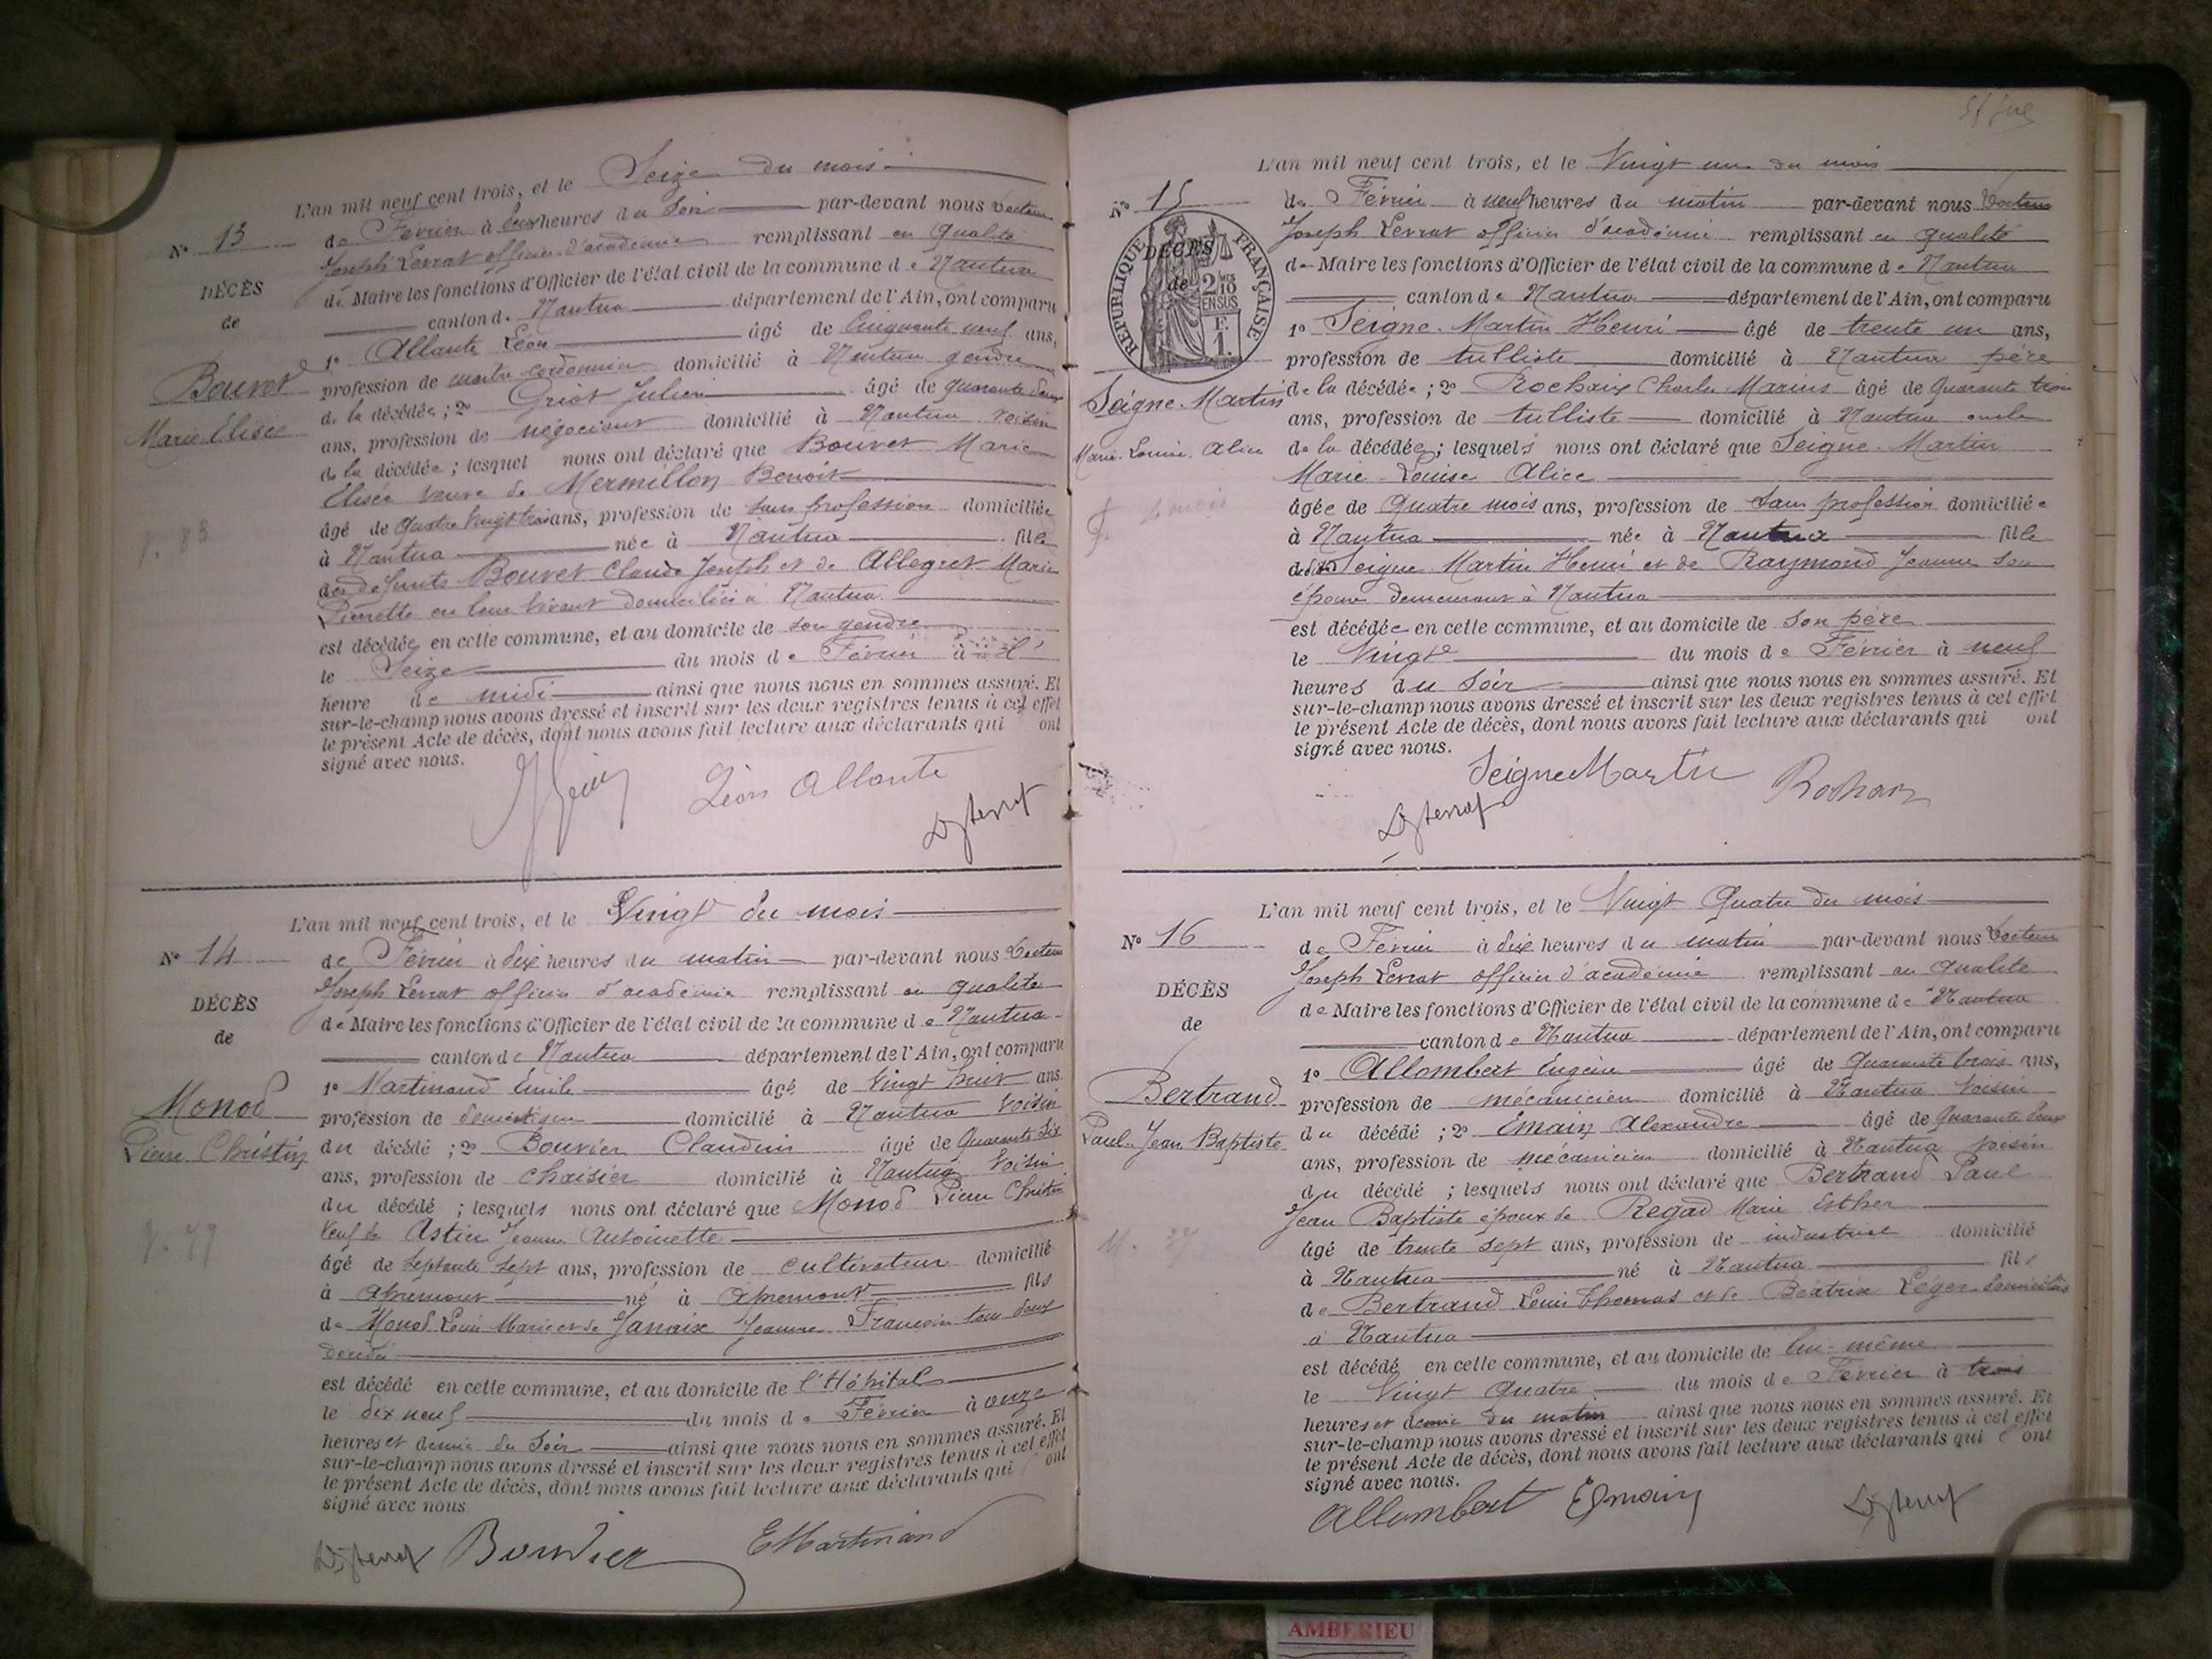 L'an mil neuf cent trois, et le Seize du mois
Nº 13
de Février à deux heures du soir par-devant nous Docteur
Joseph Levrat officier d'académie remplissant en qualité
DÉCÈS
de Maire les fonctions d'Officier de l'état civil de la commune de Nantua
de
canton de Nantua département de l'Ain, ont comparu
1º Allante Léon âgé de Cinquante neuf ans,
Bouvet
profession de maitre cordonnier domicilié à Nantua gendre
de la décédée; 2º Griot Julien âgé de quarante deux
Marie Elisée
ans, profession de négociant domicilié à Nantua voisin
de la décédée; lesquel nous ont déclaré que Bouvet Marie
Elisée veuve de Mermillon Benoit
âgé de quatre vingt trois ans, profession de sans profession domiciliée
V. 83
à Nantua née à Nantua fille
des défunts Bouvet Claude Joseph et de Allegret Marie
Pierrette en leur vivant domiciliés à Nantua
est décédée en cette commune, et au domicile de son gendre
le Seize du mois de Février à
heure de midi ainsi que nous nous en sommes assuré. Et
sur-le-champ nous avons dressé et inscrit sur les deux registres tenus à cet effet
le présent Acte de décès, dont nous avons fait lecture aux déclarants qui ont
signé avec nous.
Léon Allante
L'an mil neuf cent trois, et le Vingt du mois
Nº 14
de Février à dix heures du matin par-devant nous Docteur
Joseph Levrat officier d'académie remplissant en qualité
DÉCÈS
de Maire les fonctions d'Officier de l'état civil de la commune de Nantua
de
canton de Nantua département de l'Ain, ont comparu
1º Martinand Emile âgé de Vingt huit ans
Monod
profession de domestique domicilié à Nantua voisin
Pierre Christin
du décédé; 2º Bouvier Claudius âgé de Quarante six
ans, profession de chaisier domicilié à Nantua voisin
du décédé; lesquels nous ont déclaré que Monod Pierre Christin
Veuf de Astier Jeanne Antoinette
V. 77
âgé de septante sept ans, profession de cultivateur domicilié
à Apremont né à Apremont fils
de Monod Louis Marie et de Janvaix Jeanne Françoise tous deux
décédés
est décédé en cette commune, et au domicile de l'Hôpital
le dix neuf du mois de Février à onze
heures et demie du soir ainsi que nous nous en sommes assuré. Et
sur-le-champ nous avons dressé et inscrit sur les deux registres tenus à cet effet
le présent Acte de décès, dont nous avons fait lecture aux déclarants qui ont
signé avec nous
Bouvier EMartinand
L'an mil neuf cent trois, et le Vingt un du mois
Nº 15
de Février à neuf heures du matin par-devant nous Docteur
Joseph Levrat officier d'académie remplissant en qualité
DÉCÈS
de
RÉPUBLIQUE FRANÇAISE
2/10 EN SUS
1 F.
de Maire les fonctions d'Officier de l'état civil de la commune de Nantua
canton de Nantua département de l'Ain, ont comparu
1º Seigne-Martin Henri âgé de trente un ans,
profession de tulliste domicilié à Nantua père
Seigne-Martin
de la décédée; 2º Rochaix Charles Marius âgé de Quarante trois
ans, profession de tulliste domicilié à Nantua oncle
Marie-Louise-Alice
de la décédée; lesquels nous ont déclaré que Seigne-Martin
Marie-Louise Alice
4 mois
âgée de Quatre mois ans, profession de sans profession domiciliée
à Nantua née à Nantua fille
de Seigne Martin Henri et de Raymond Jeanne son
épouse demeurant à Nantua
est décédée en cette commune, et au domicile de son père
le Vingt du mois de Février à neuf
heures du soir ainsi que nous nous en sommes assuré. Et
sur-le-champ nous avons dressé et inscrit sur les deux registres tenus à cet effet
le présent Acte de décès, dont nous avons fait lecture aux déclarants qui ont
signé avec nous.
SeigneMartin
L'an mil neuf cent trois, et le Vingt Quatre du mois
Nº 16
de Février à dix heures du matin par-devant nous Docteur
Joseph Levrat officier d'académie remplissant en qualité
DÉCÈS
de Maire les fonctions d'Officier de l'état civil de la commune de Nantua
de
canton de Nantua département de l'Ain, ont comparu
1º Allombert Eugène âgé de Quarante trois ans,
Bertrand
profession de mécanicien domicilié à Nantua voisin
Paul-Jean Baptiste
du décédé; 2º Emain Alexandre âgé de Quarante deux
ans, profession de mécanicien domicilié à Nantua voisin
du décédé; lesquels nous ont déclaré que Bertrand Paul
Jean Baptiste époux de Regad Marie Esther
M. 37
âgé de trente sept ans, profession de industriel domicilié
à Nantua né à Nantua fils
de Bertrand Louis Thomas et de Béatrix Léger domiciliés
à Nantua
est décédé en cette commune, et au domicile de lui-même
le Vingt Quatre du mois de Février à trois
heures et demie du matin ainsi que nous nous en sommes assuré. Et
sur-le-champ nous avons dressé et inscrit sur les deux registres tenus à cet effet
le présent Acte de décès, dont nous avons fait lecture aux déclarants qui ont
signé avec nous.
Allombert Emain
AMBERIEU